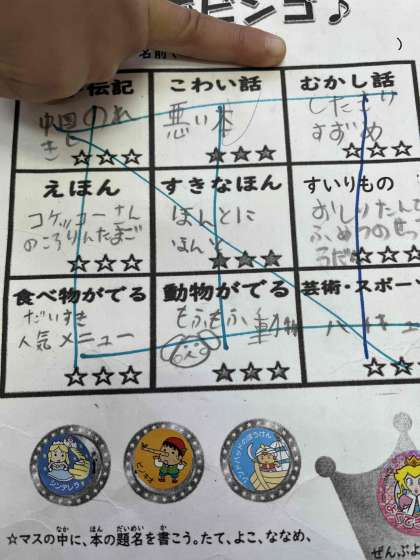 ビンゴ♪
名前(
)
伝記
こわい話
むかし話
中国のれ
きし
悪い本
したきり
すずめ
☆☆☆
☆☆☆
☆☆☆
えほん
すきなほん
すいりもの
コケッコーさん
のころりんたまご
ほんとに
ほんと
おしりたんて
ふめつのせっ
☆☆☆
☆☆☆
☆☆☆
食べ物がでる
動物がでる
芸術・スポー
だいすき
人気メニュー
もふもふ動物
ハイキュー
☆☆☆
☆☆☆
☆☆
シンデレラ
ピノキオ
シンドバッドのぼうけん
☆マスの中に、本の題名を書こう。たて、よこ、ななめ、
なか
ほん
だいめい
か
ぜんぶ